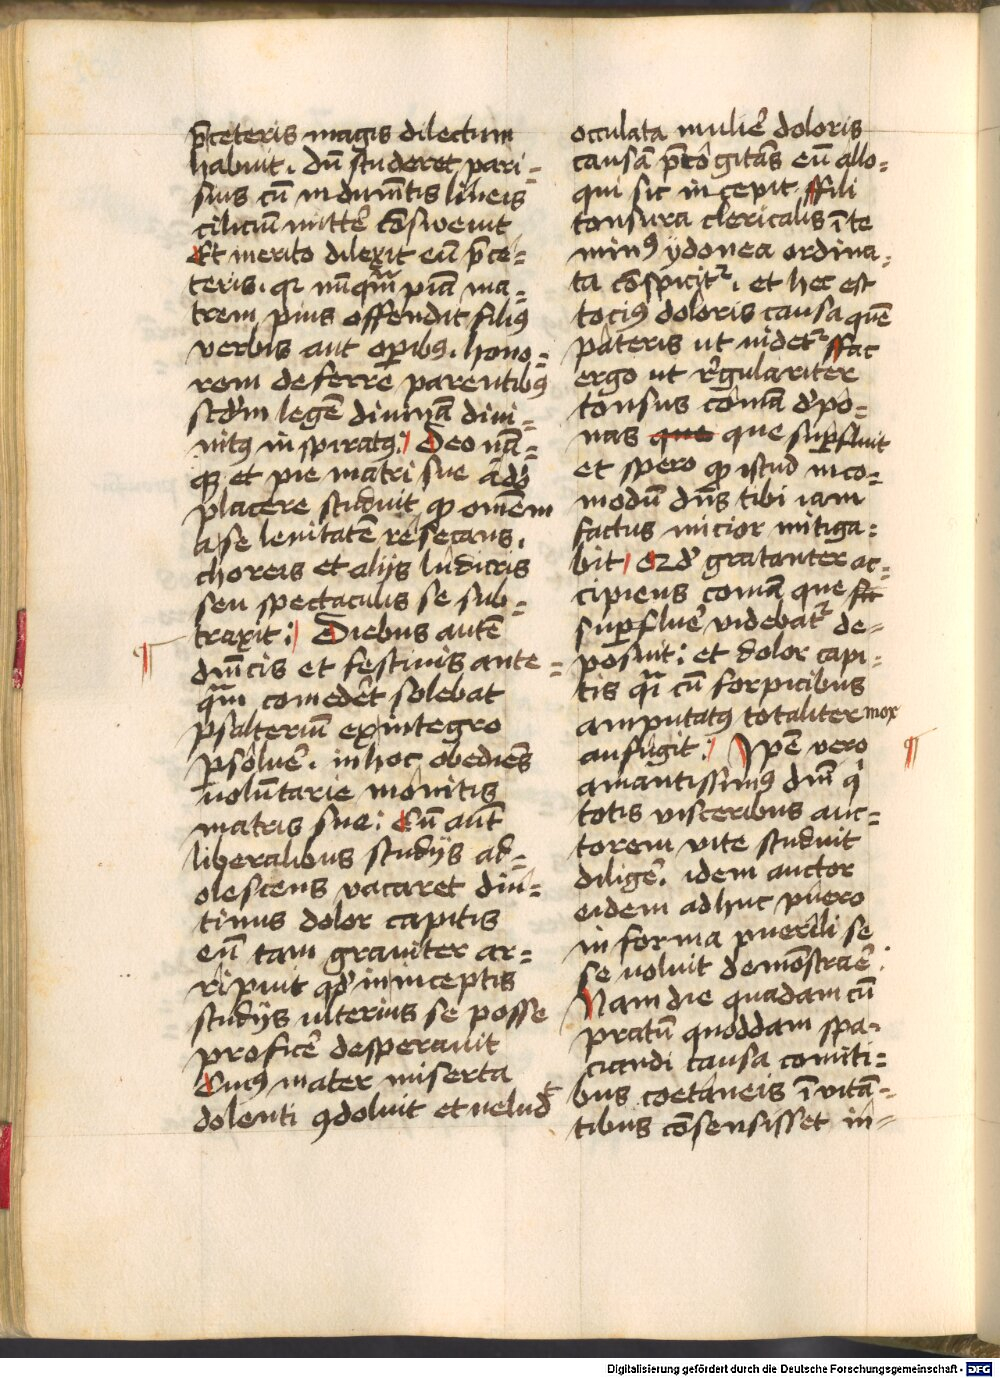 p̄ceteris magis dilectum
habuit. dū studeret pari=
sius cū indumētis lineis
cilicium mitte᷑ cōsweuit
Et merito dilexit eū p̄ce=
teris. qꝛ nūqᷓm piā ma=
trem pius offendit filiꝰ
verbis aut oꝑibꝰ. hono=
rem deferre parentibꝰ
scd̓m legē diuinā diui=
nitꝰ inspiratꝰ: Deo nā=
qꝫ et pie matri sue adeo
placere studuit qꝙ omēm
a se leuitatē resecans.
choreis et alijs ludicris
seu spectaculis se sub=
traxit: Diebus autē
dnīcis et festiuis ante=
qᷓm comedēt solebat
psalterium ex integro
ꝑsolue᷑. in hoc obediēs
uoluntarie monitis
matris sue: Cū aut̄
liberalibus studijs ad=
olescens vacaret diu=
tinus dolor capitis
eū tam grauiter ar=
ripuit qd̓ in inceptis
studijs ulterius se posse
profice᷑ desperauit
Cuiꝰ mater miserta
dolenti ꝯdoluit et uelud t
occulata mulie᷑ doloris
causā p̄cōgitās eū allo=
qui sic incepit ffili
tonsura clericalis ī te
minꝰ ydonea ordina=
ta cōspicitᷣ. et hec est
tociꝰ doloris causa quē
pateris ut uidetᷣ ffac
ergo ut r̓gulariter
tonsus comā d̓po=
nas que que suꝑfluit
et spero qꝙ istud inco=
modū dn̄s tibi iam
factus micior mitiga=
bit gratanter ac=
cipiens comā que
suꝑflue᷑ videbatᷣ de=
posuit: et dolor capi=
tis qᷓi cū forpicibus
amputatꝰ totaliter mox
aufugit: Ip̄e vero
amantissimꝰ dnī qͥ
totis visceribus auc=
torem vite studuit
dilige᷑. idem auctor
eidem adhuc puero
in forma puerili se
se uoluit demōstrae᷑.
Nam die quadam cū
pratū quoddam spa=
ciandi causa comiti=
bus coetaneis īuitā=
tibus cōsensisset in=
Digitalisierung gefördert durch die Deutsche Forschungsgemeinschaft - DFG